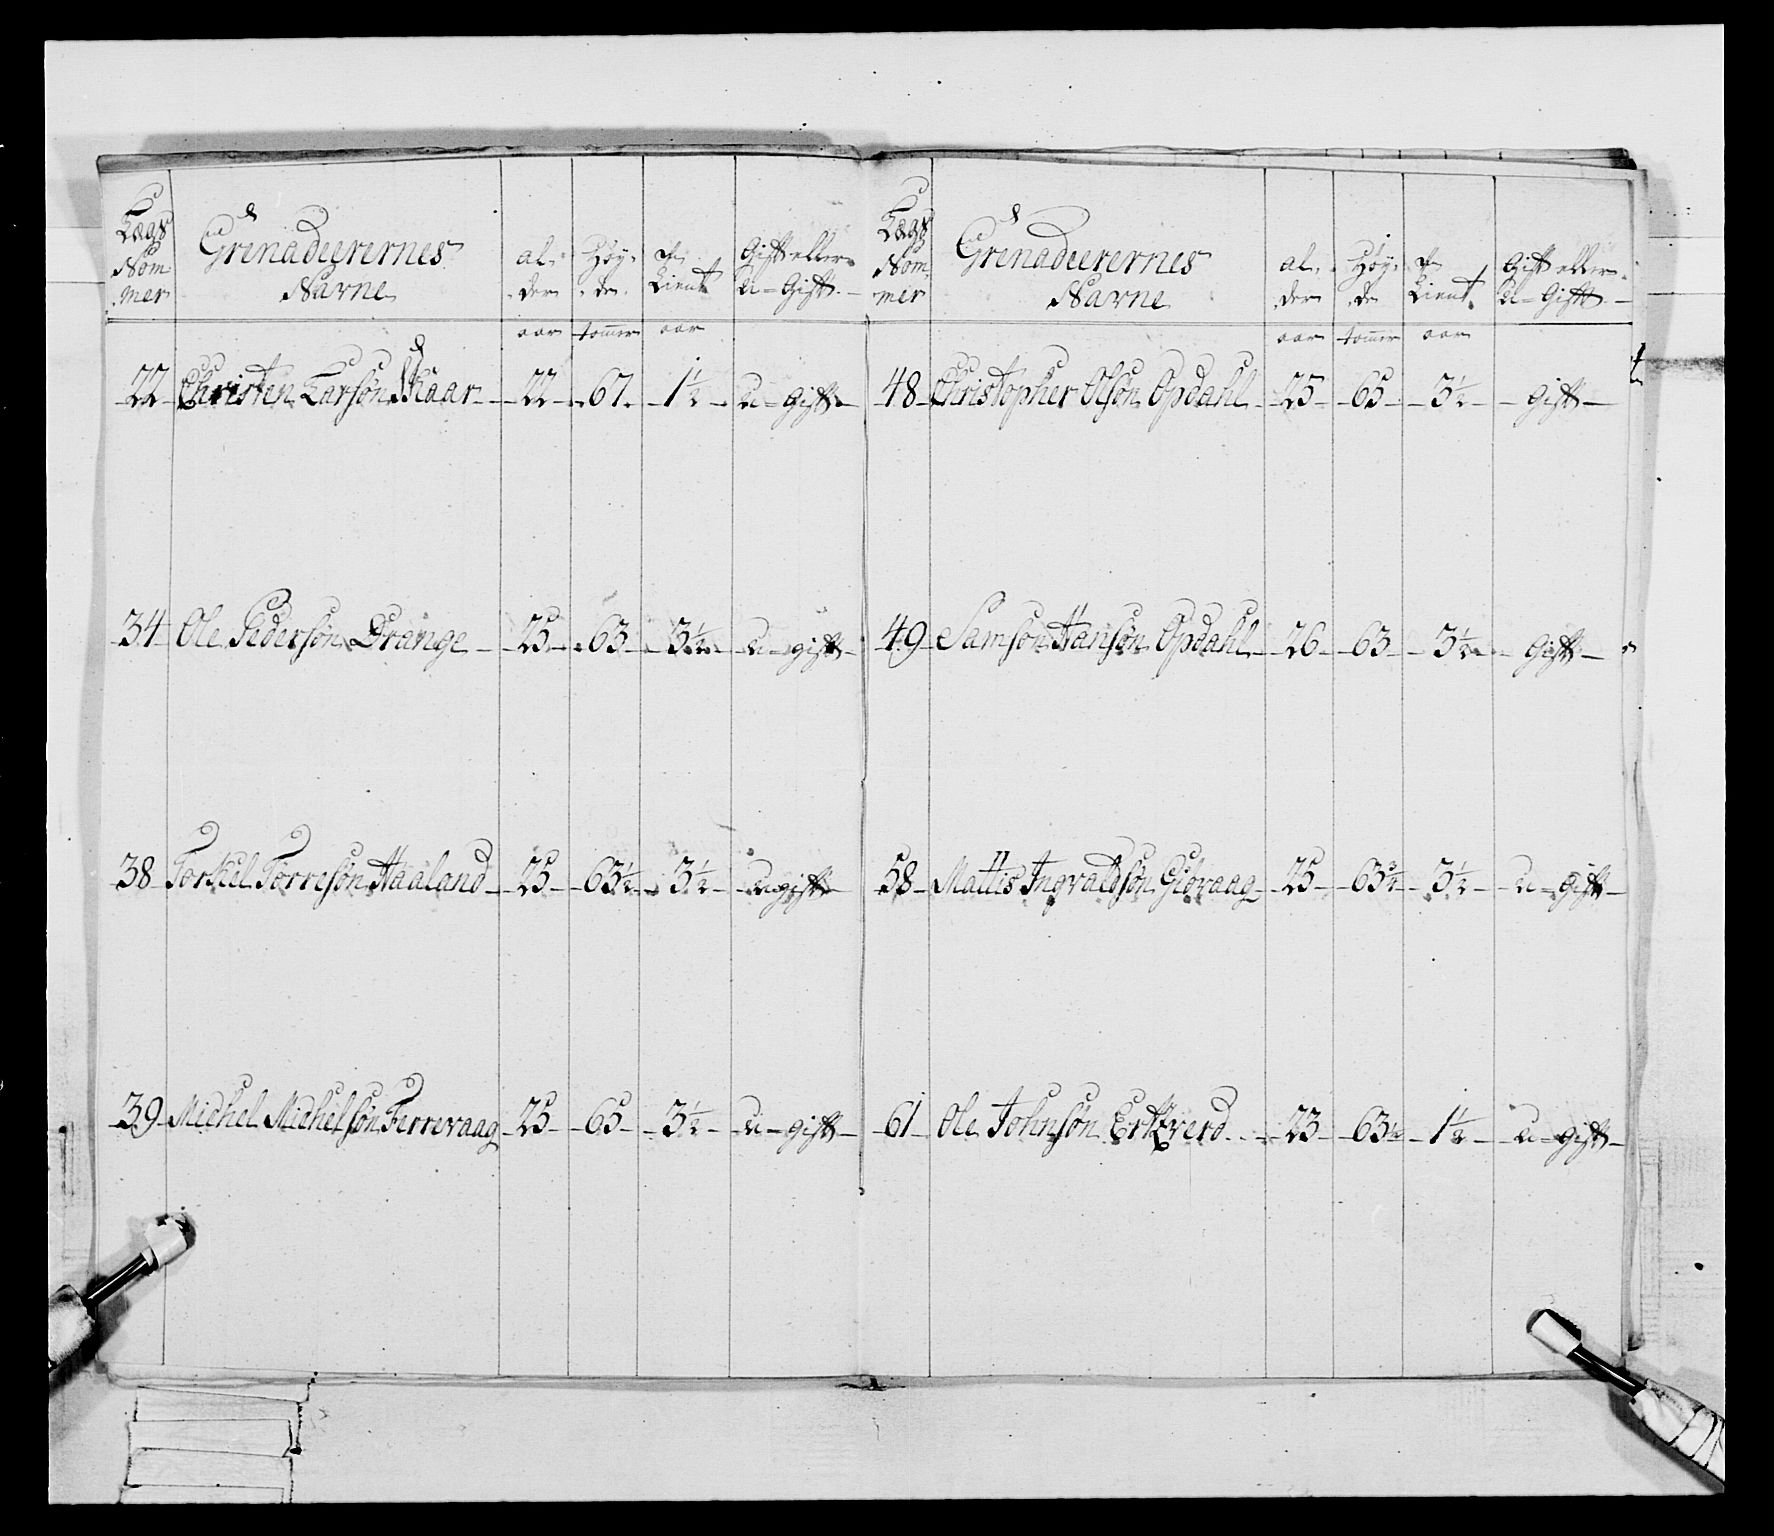 Lægs Nom mer
Grenadeerernes Navne
al der
Høy de
Tient
Gift eller U-Gift
aar tomer aar
22 Christen Larsøn Skaar 22 67 1½ U-Gift
34 Ole Pedersøn Drange 25 63 3½ u-gift
38 Torkel Torresøn Haaland 25 63½ 3½ u-gift
39 Michel Michelsøn Ferrevaag 25 65 3½ u-gift
Lægs Nom mer
Grenadeerernes Navne
al der
Høy de
Tient
Gift eller U-Gift
aar tomer aar
48 Christopher Olsøn Opdahl 25 65 3½ Gift
49 Samson Hansøn Opdahl 26 63 3½ Gift
58 Mattis Ingvaldsøn Giøvaag 25 63½ 3½ U-Gift
61 Ole Johnsøn 23 63½ 1½ U-gift